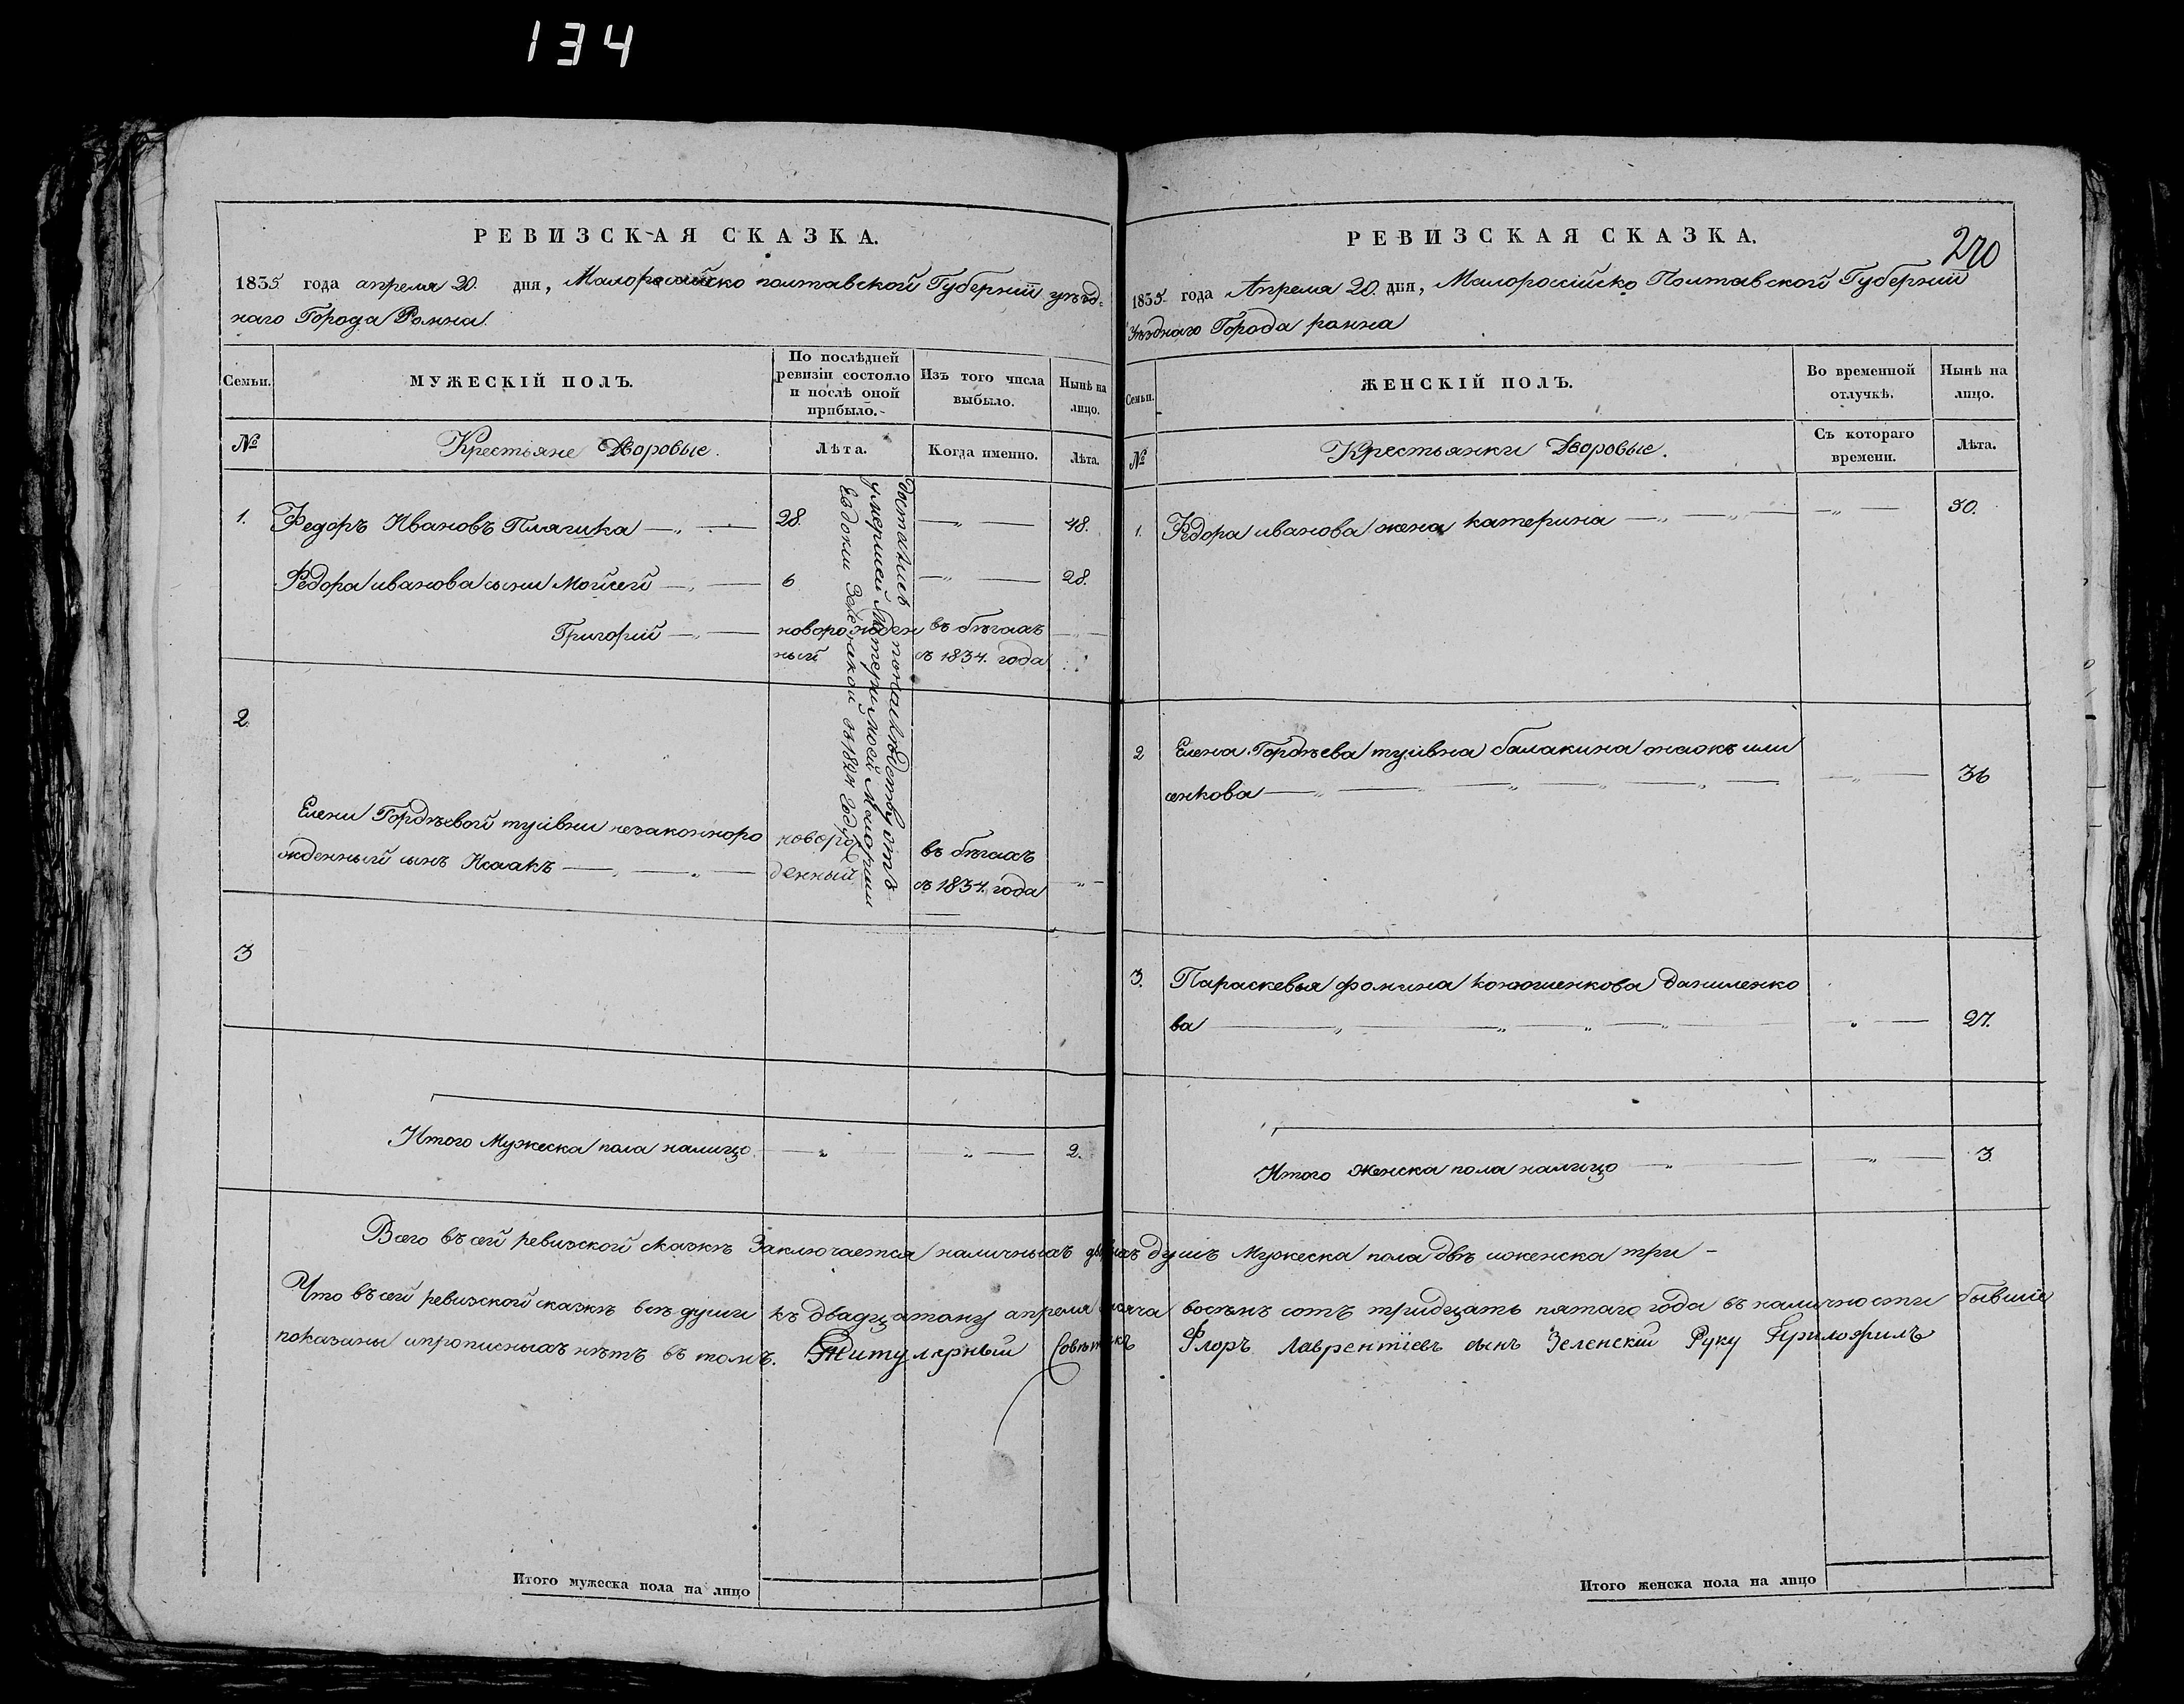 134
РЕВИЗСКАЯ СКАЗКА.
1835 года апреля 20. дня, Малоросийско полтавской Губернїи уѣзд-
наго Города Ромна.
Семьи.
МУЖЕСКІЙ ПОЛЪ.
По послѣдней
ревизіи состояло
и послѣ оной
прибыло.
Изъ того числа
выбыло.
Нынѣ на
лицо.
№
Крестьяне Дворовые.
Лѣта.
Когда именно.
Лѣта.
1. Федоръ Ивановъ Плягика 28. 48.
Федора иванова сыни Мойсей 6 28.
Григорій новорожден въ бѣгахъ
ный съ 1834. года
достались понаслѣдству отъ
умершей Матери моей Маиорши
Евдокии Зеленской въ 1824 году
2.
Елени Гордѣевой незаконноро новорож въ бѣгахъ
жденный сынъ Исаакъ денный съ 1834. года
3
Итого Мужеска пола налицо 2.
РЕВИЗСКАЯ СКАЗКА.
270
1835. года Апреля 20. дня, Малоросійско Полтавской Губерніи
Уѣзднаго Города ромна
Семьи.
ЖЕНСКІЙ ПОЛЪ.
Во временной
отлучкѣ.
Нынѣ на
лицо.
№
Крестьянки Дворовые.
Съ котораго
времени.
Лѣта.
1. Федора иванова жена катерина 50.
2 Елена Гордѣева балакина или
сенкова 36
3. Параскевья фомина конюшенкова даниленко
ва 27.
Итого Женска пола налицо 3.
Всего въ сей ревизской сказкѣ Заключается наличныхъ душъ Мужеска пола двѣ иженска три
Что въ сей ревизской сказкѣ всѣ души къ двадцатому апреля тысяча восѣмъ сотъ тридцать пятаго года въ наличности бывшіе
показаны ипрописныхъ нѣтъ въ томъ. Титулярный Совѣтникъ Флоръ Лаврентїевъ сынъ Зеленскій Руку Приложилъ
Итого мужеска пола на лицо
Итого женска пола на лицо